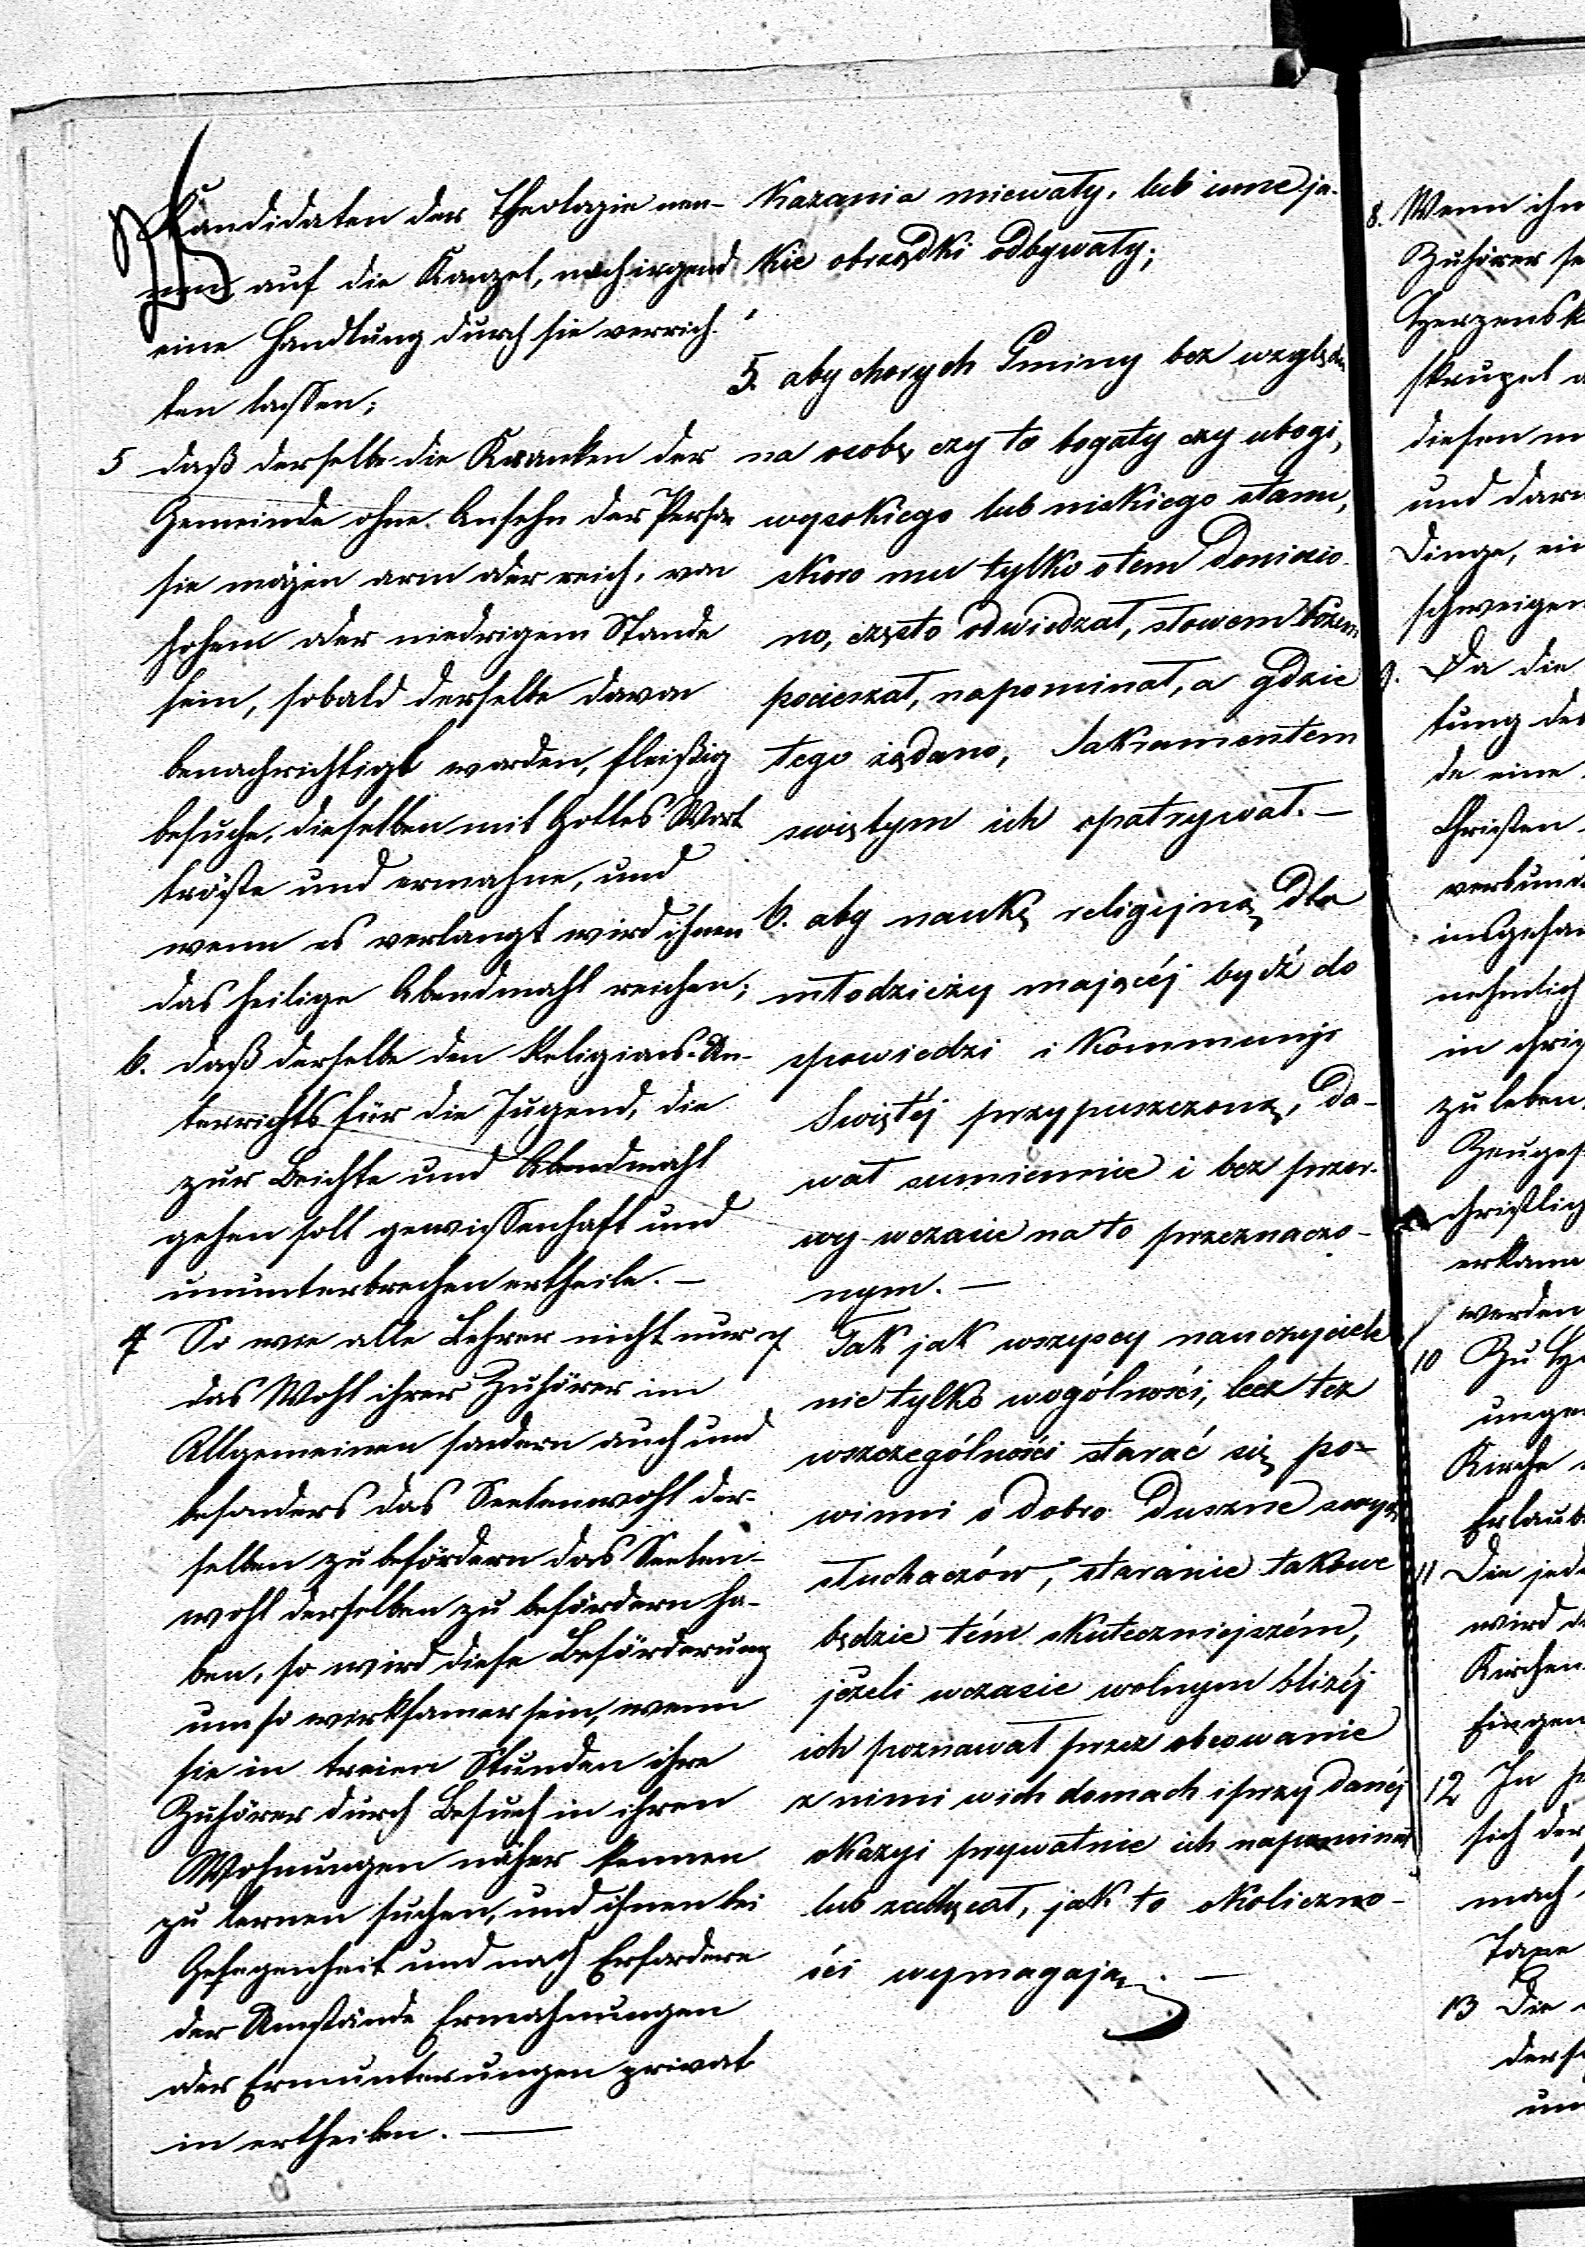 Kandidaten der Theologie nen-
nen auf die Kanzel, noch irgend
eine Handlung durch sie verrich-
ten lassen;
5 daß derselbe die Kranken der
Gemeinde ohne Ansehn der Person
sie mögen arm oder reich, von
hohem oder niedrigem Stande
sein, sobald derselbe davon
benachrichtigt worden, fleißig
besuche, dieselben mit Gottes Wort
tröste und ermahne, und
wenn es verlangt wird ihnen
das heilige Abendmahl reichen;
6. daß derselbe den Religions-Un-
terrichts für die Jugend, die
zur Beichte und Abendmahl
gehen soll gewissenhaft und
ununterbrochen ertheile. —
7 So wie alle Lehrer nicht nur
das Wohl ihrer Zuhörer im
Allgemeinen sondern auch und
besonders das Seelenwohl der-
selben zu befördern das Seelen-
wohl derselben zu befördern ha-
ben, so wird diese Beförderung
um so wirksamer sein, wenn
sie in freien Stunden ihre
Zuhörer durch Besuch in ihren
Wohnungen näher kennen
zu lernen suchen, und ihnen bei
Gelegenheit und nach Erfordern
der Umstände Ermahnungen
oder Ermunterungen privat
in ertheilen. —
Kazania miewały, lub inne ja-
kie obrządki odbywały;
5. aby chorych Gminy bez względu
na osobę czy to bogaty czy ubogi,
wysokiego lub niskiego stanu,
skoro mu tylko otem doniesio-
no, często odwiedzał, słowem Bożem
pocieszał, napominał, a gdzie
tego żądano, Sakramentem
świętym ich opatrywał. —
6. aby naukę religijną dla
młodzieży mającéj bydź do
spowiedzi i Kommunji
Świętéj przypuszczoną, da-
wał sumiennie i bez przer-
wy wczasie na to przeznaczo-
nym. —
7 Tak jak wszyscy nauczyciele
nie tylko wogólności, lecz też
wszczególności starać się po-
winni o dobro duszne swych
słuchaczów, staranie takowe
będzie tém skuteczniejszém,
jeżeli wczasie wolnym bliżéj
ich poznawał przez obcowanie
z nimi wich domach i przy danéj
okazyi prywatnie ich napominał
lub zachęcał, jak to okoliczno-
ści wymagają. —
8. Wenn ihm
Zuhörer
skrupel
diesen
und
Dinge,
schweigen
9. Da die
tung des
de eine
Christen
in
zu leben
christlich
werden
10 Zu
Kirche
11 Die
wird
Kirchen
12 In
sich der
mach
Taxe
13 Die